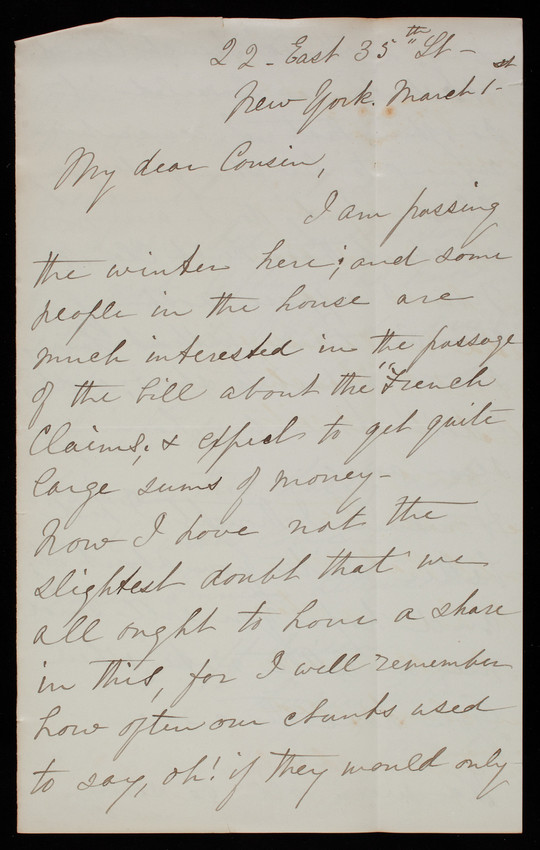 22 - East 35th St -
New York. March 1st -
My dear Cousin,
I am passing
the winter here; and some
people in the house are
much interested in the passage
of the bill about the "French
Claims, & expect to get quite
large sums of money -
Now I have not the
slightest doubt that we
all ought to have a share
in this, for I well remember
how often our aunts used
to say, oh! if they would only